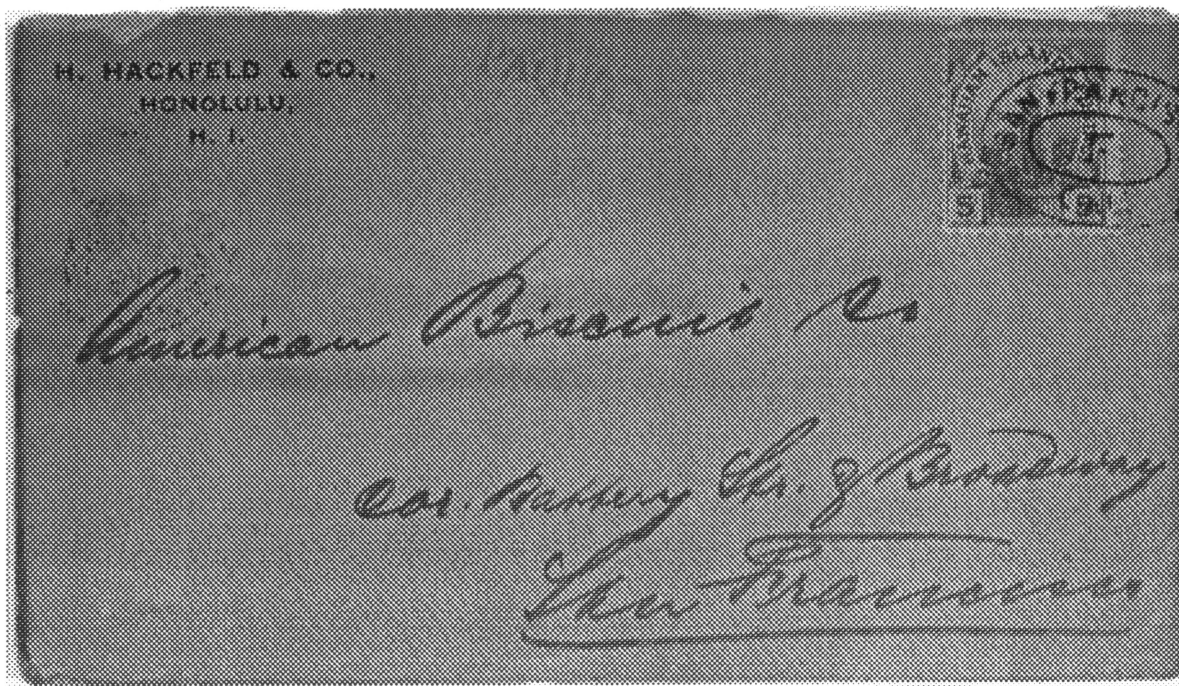 H. HACKFELD & CO.,
HONOLULU,
H. I.
HAWAIIAN ISLANDS
SAN FRANCIS
T
5 5
American Biscuit Co
Cor. Battery Str. & Broadway
San Francisco